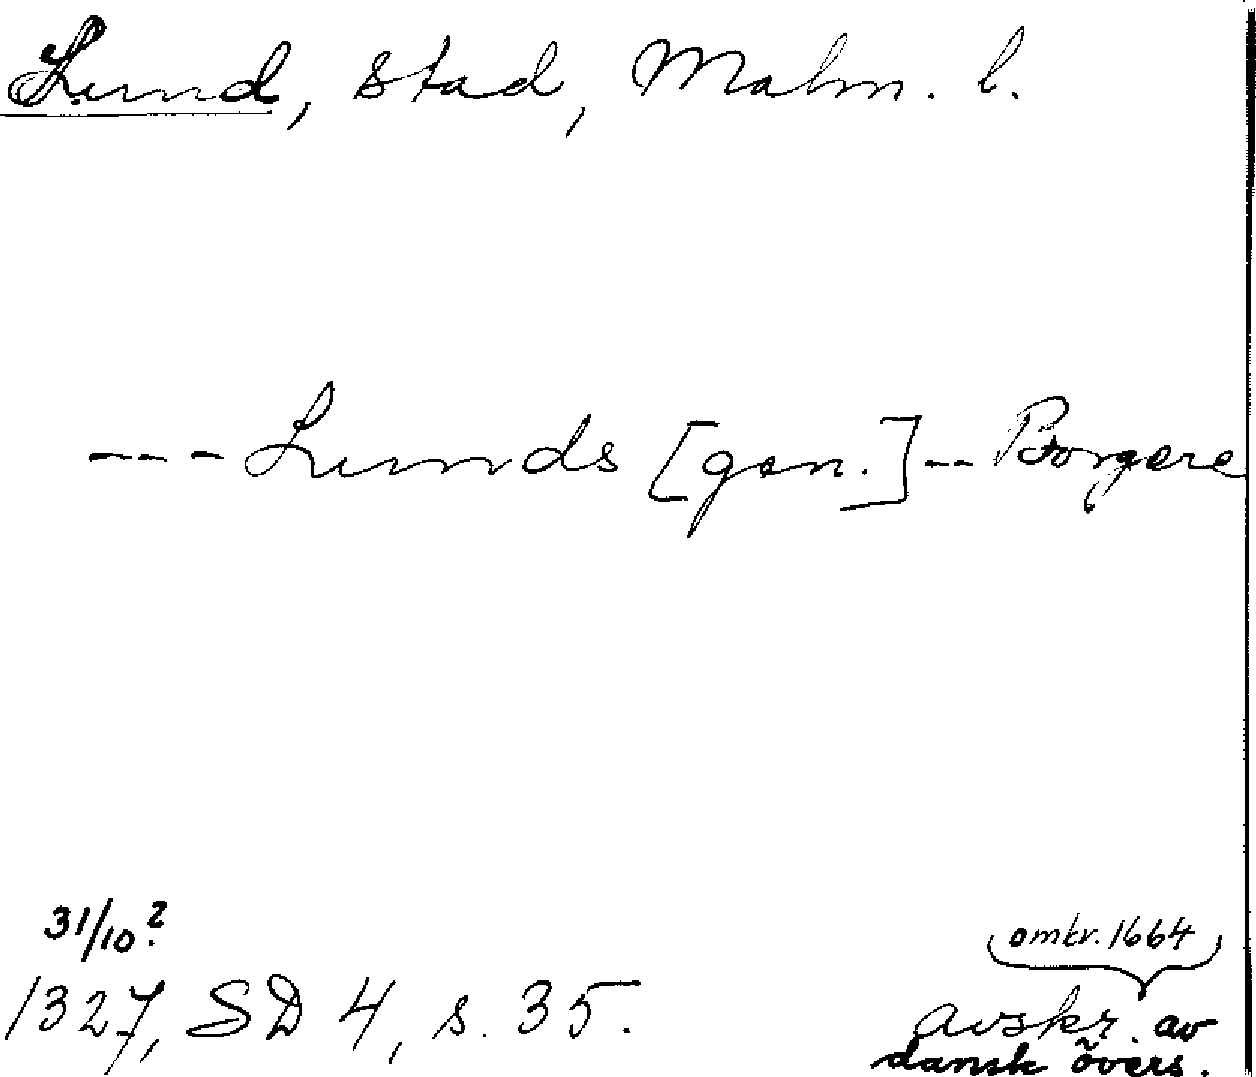 Lund, stad, Malm. l.
--- Lunds [gen.] -- Borgere
31/10?
1327, SD 4, s. 35.
omkr. 1664
avskr. av
dansk övers.